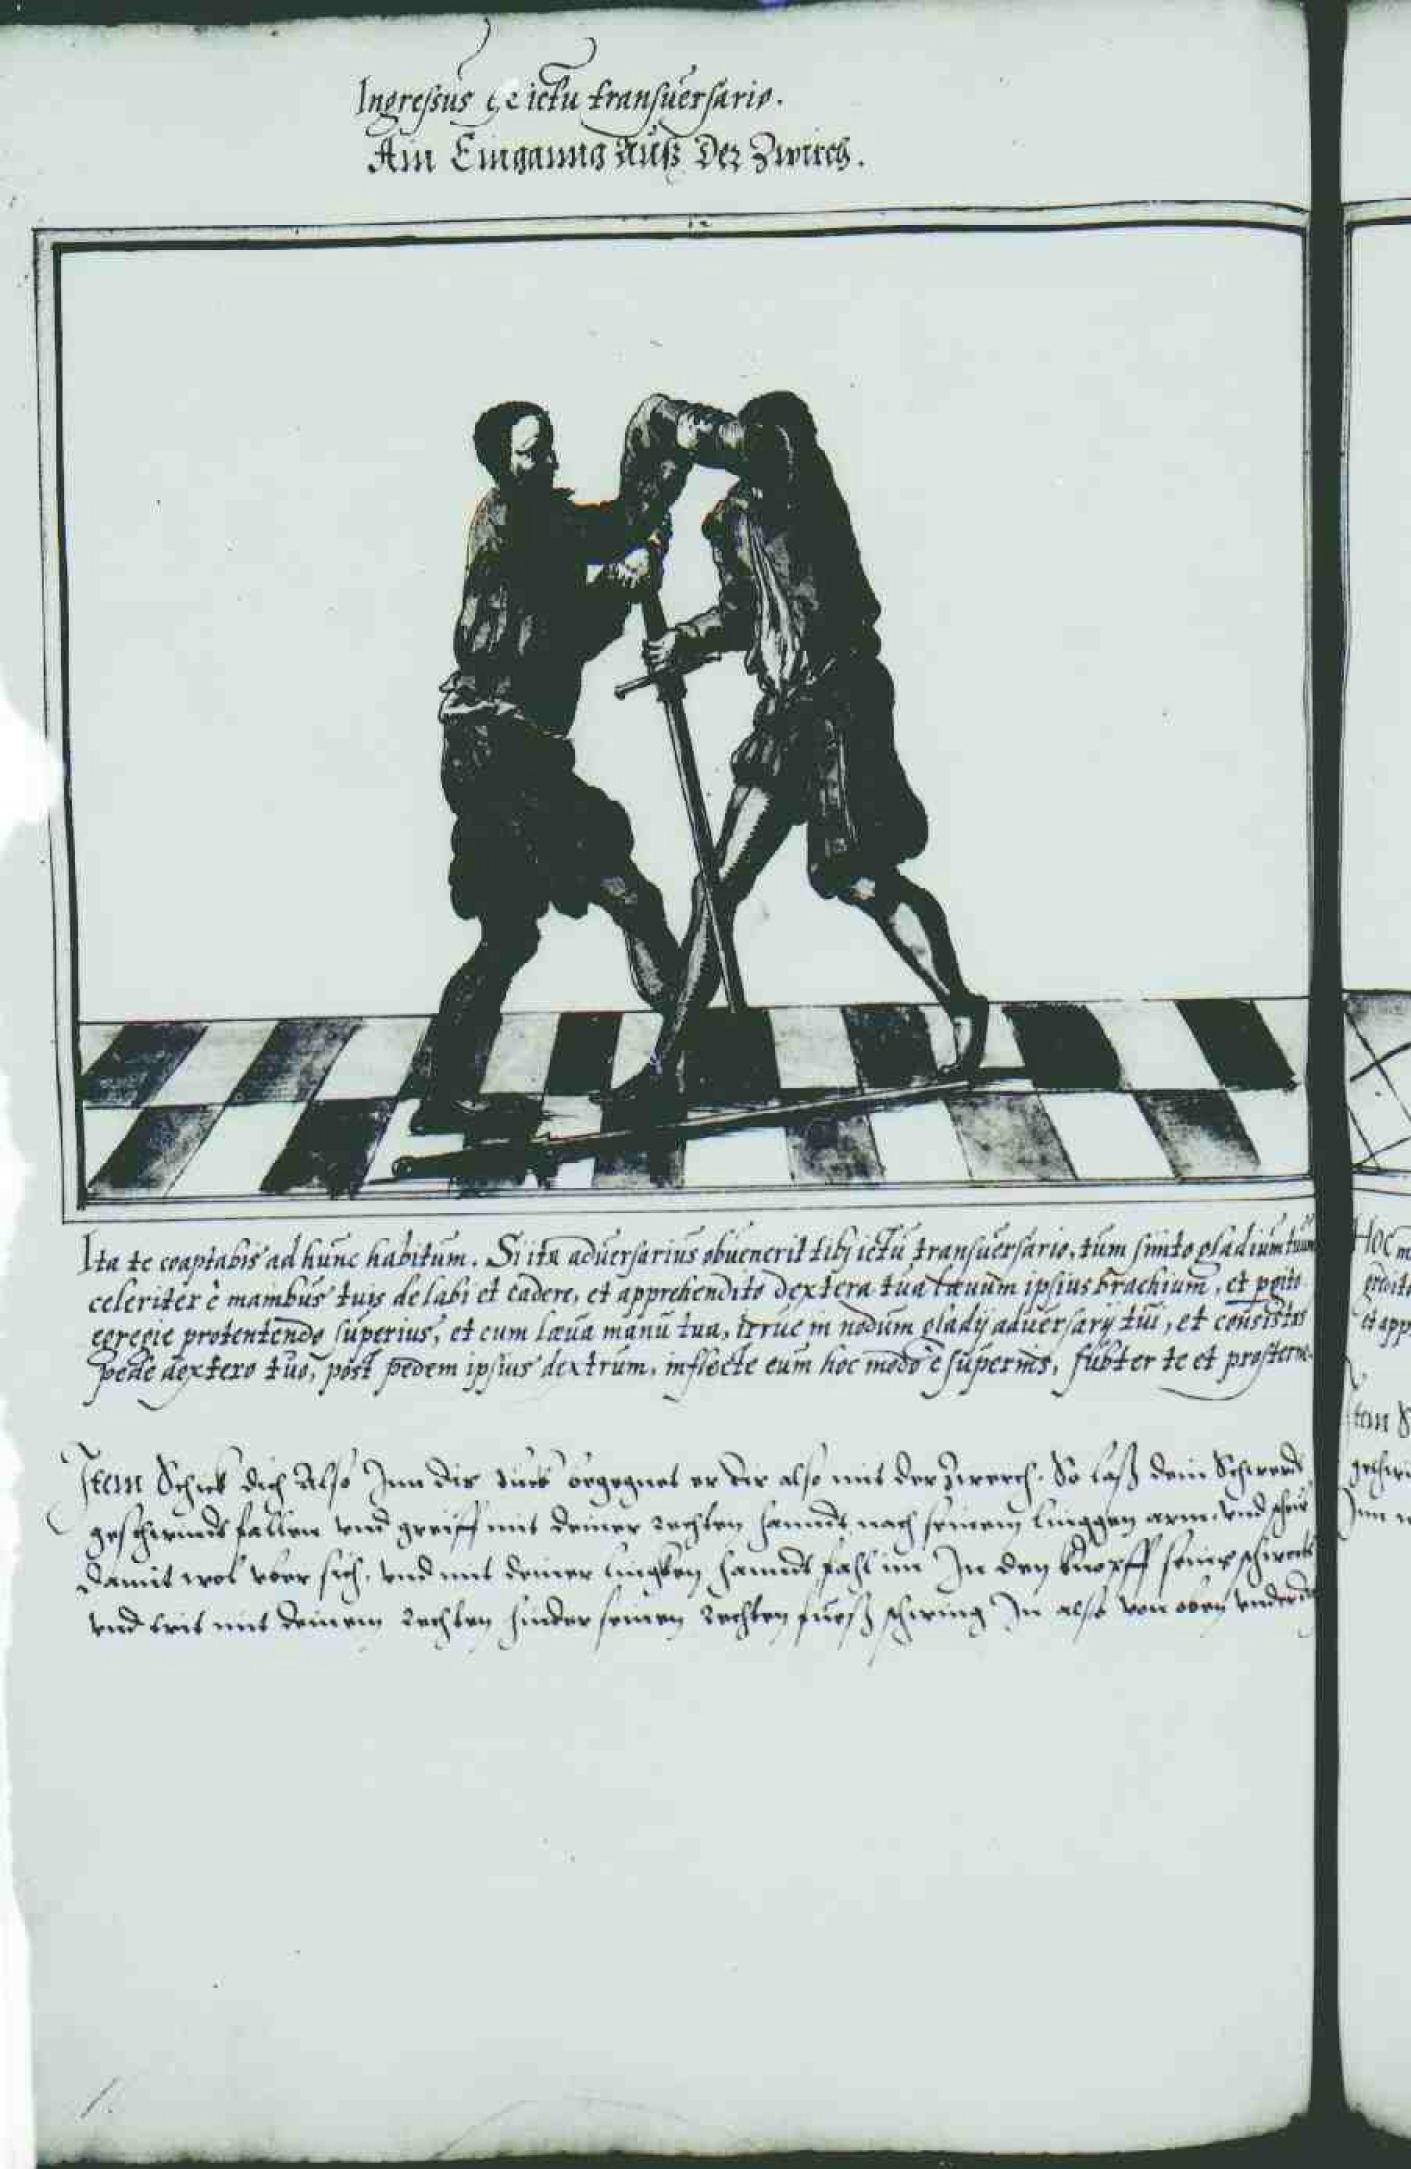 Ingressus ictu transuersario.
Ain Einganng Auß Der Zwirch.
12
Ita te coaptabis ad hunc habitum. Si ita aduersarius obuenerit tibj ictu transuersario, tum sinito gladium tuum
celeriter è manibus tuis delabi et cadere, et apprehendito dextera tua læuum ipsius brachium, et
egregie protentendo superius, et cum læua manu tua, irrue in nodum gladij aduersarij tui, et consistas
pede dextero tuo, post pedem ipsius dextrum, inflecte eum hoc modo è supernis, subter te et prosterne.
Item Schick dich Also Inn die stuck begegnet er dir also mit der Zwerch. So laß dein Schwerdt
geschwindt fallen vnd greiff mit deiner rechten hanndt nach seinem linggen arm, vnd scheib
damit wol vber sich, vnd mit deiner lingken hanndt fahl im In den knopff seines schwerts
vnd trit mit deinem rechten hinder seinen rechten fueß schwing In also von oben
Hoc
et app
Item